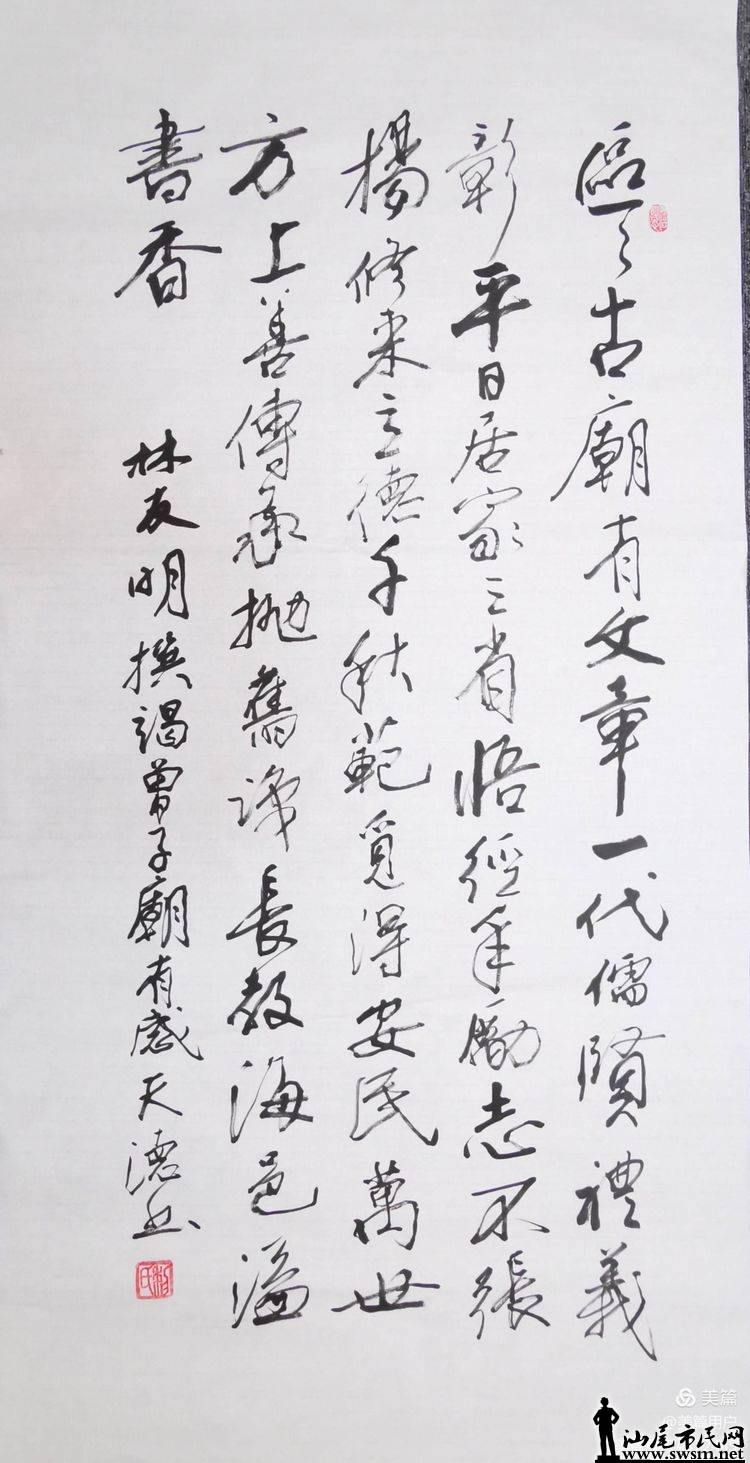 區々古廟有文章一代儒賢禮義
彰平日居家三省悟經年勵志不張
揚修來立德千秋範覓得安民萬世
方上善傳承拋舊識長教海邑溢
書香
林友明撰謁曾子廟有感天德书
美篇
@美篇用户
汕尾市民网
www.swsm.net